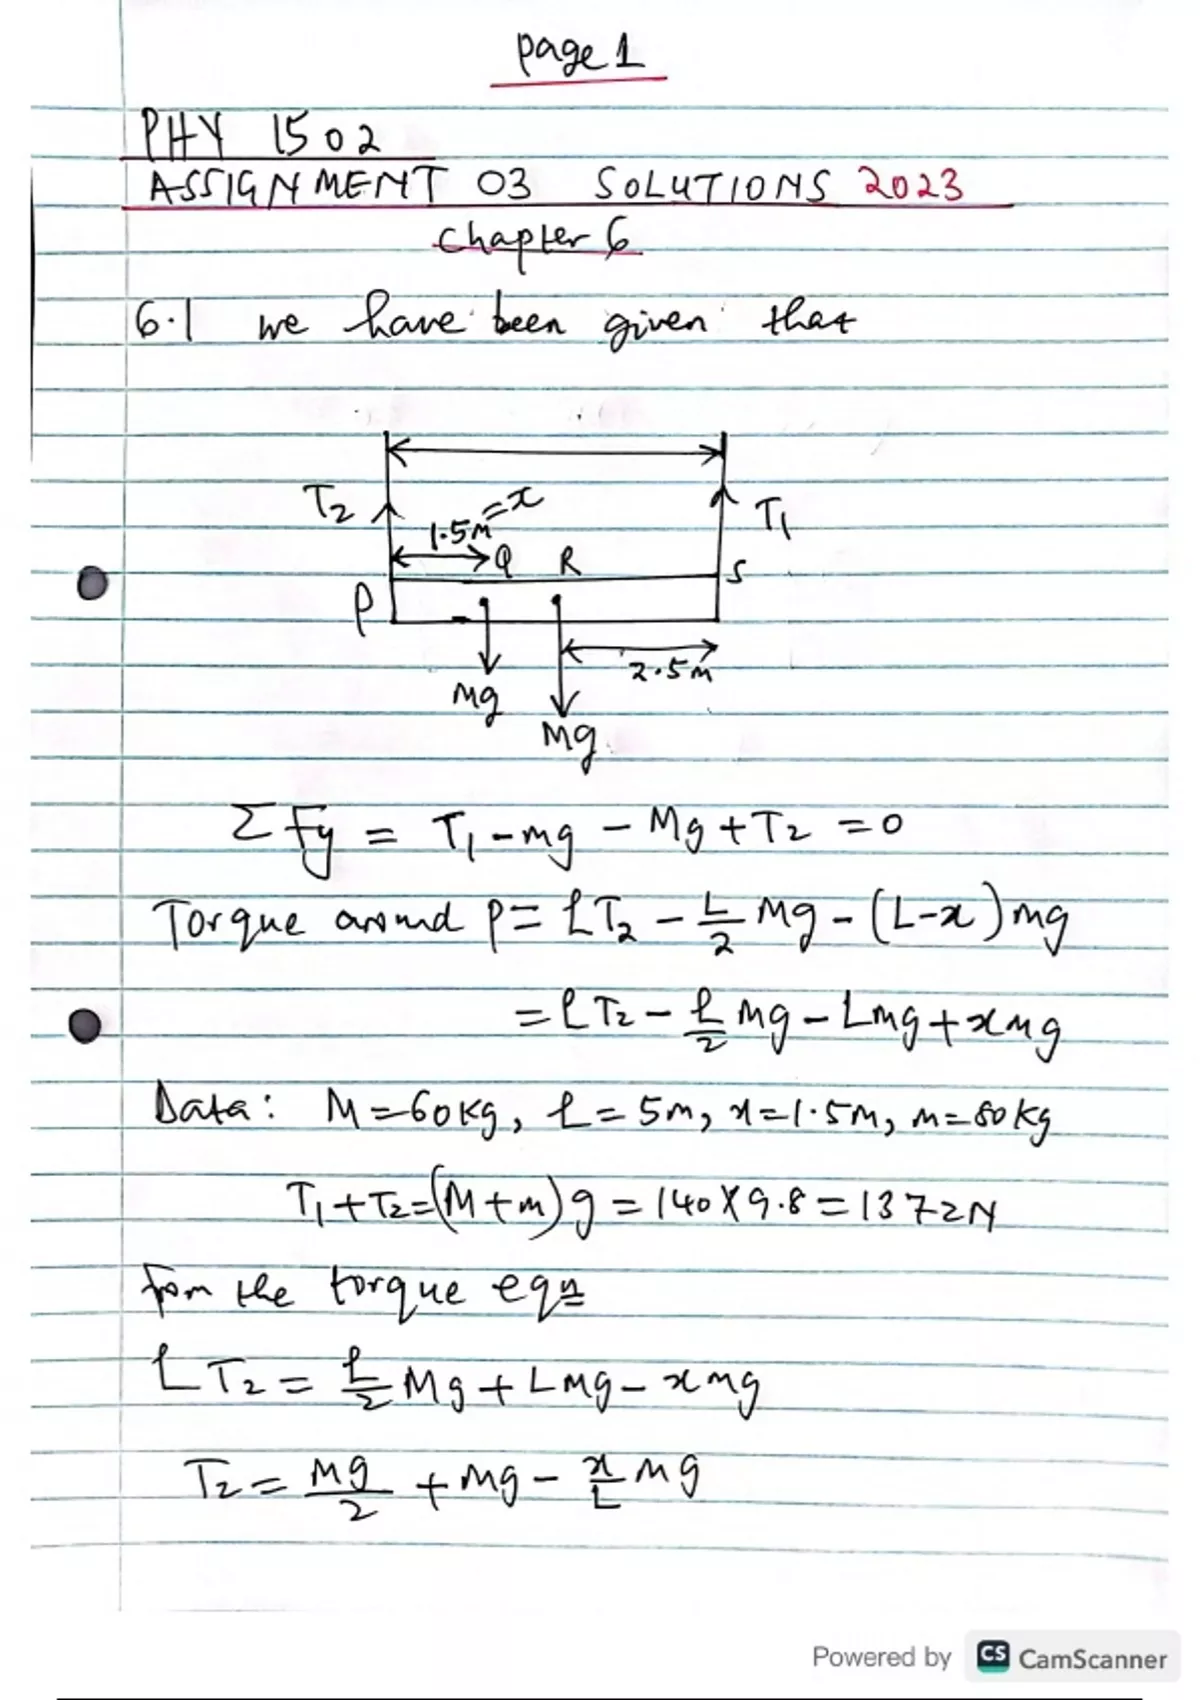 page 1
PHY 1502
ASSIGNMENT 03 SOLUTIONS 2023
Chapter 6
6.1 we have been given that
T₂ 1.5m =x T₁
P Q R S
2.5m
mg
Mg
ΣFy = T₁ - mg - Mg + T₂ = 0
Torque around P = LT₂ - L/2 Mg - (L-x)mg
= LT₂ - L/2 Mg - Lmg + xmg
Data: M = 60kg, L = 5m, x = 1.5m, m = 80kg
T₁ + T₂ = (M + m)g = 140 X 9.8 = 1372N
from the torque eqn
LT₂ = L/2 Mg + Lmg - xmg
T₂ = Mg/2 + mg - x/L mg
Powered by CS CamScanner